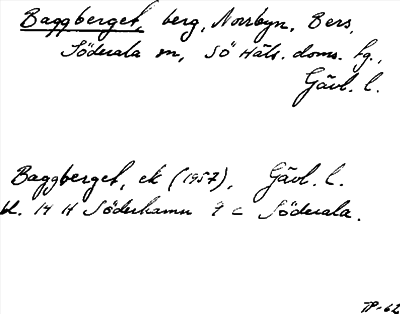 Baggberget, berg, Norrbyn, Bers,
Söderala sn, Sö Häls. doms. hg.,
Gävl. l.
Baggberget, ek (1957), Gävl. l.
bl. 14 H Söderhamn 9 c Söderala.
TP-62